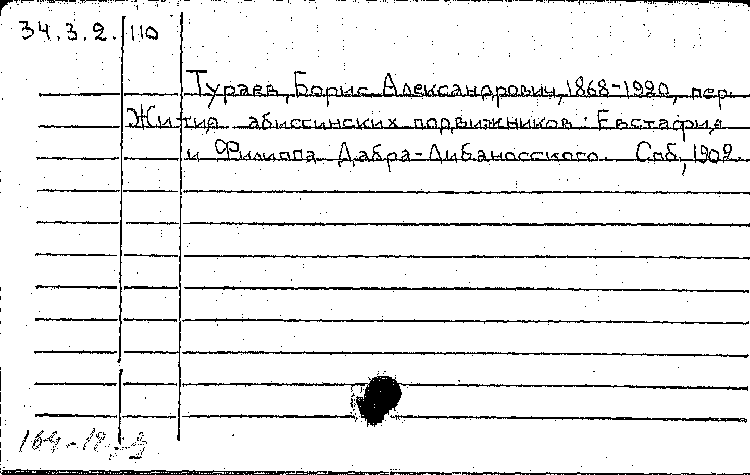 34.3.2. 110
Тураев, Борис Александрович, 1868-1920, пер.
Жития абиссинских подвижников: Евстафия
и Филиппа Дабра-Либаносского. Спб, 1902.